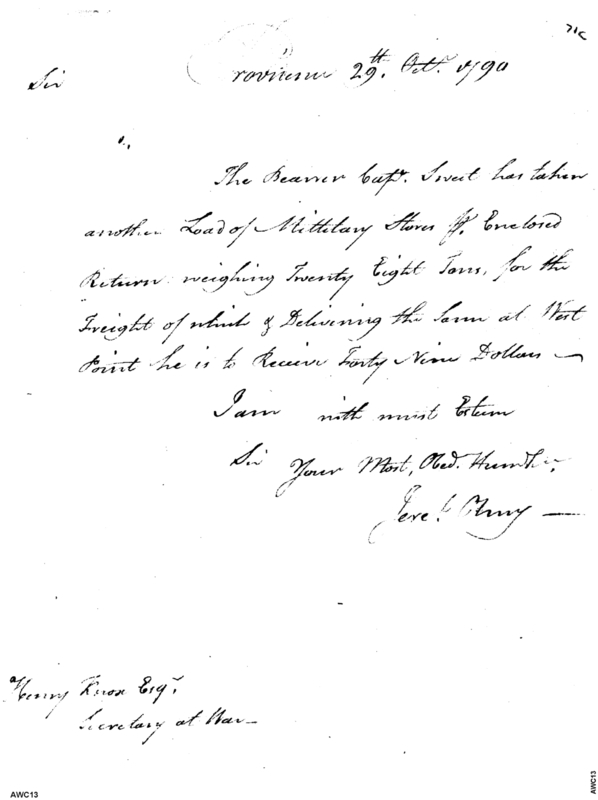 71c
Providence 29th. Octr. 1790
Sir
The Bearer Capt. Sweet has taken
another Load of Millitary Stores Pr. Enclosed
Return weighing Twenty Eight Tons, for the
Freight of which & Delivering the same at West
Point he is to Receive Forty Nine Dollars —
I am with must Esteem
Sir Your Most, Obed. Humble
Jereh. Olney —
Henry Knox Esqr.
Secretary at War —
AWC13
AWC13